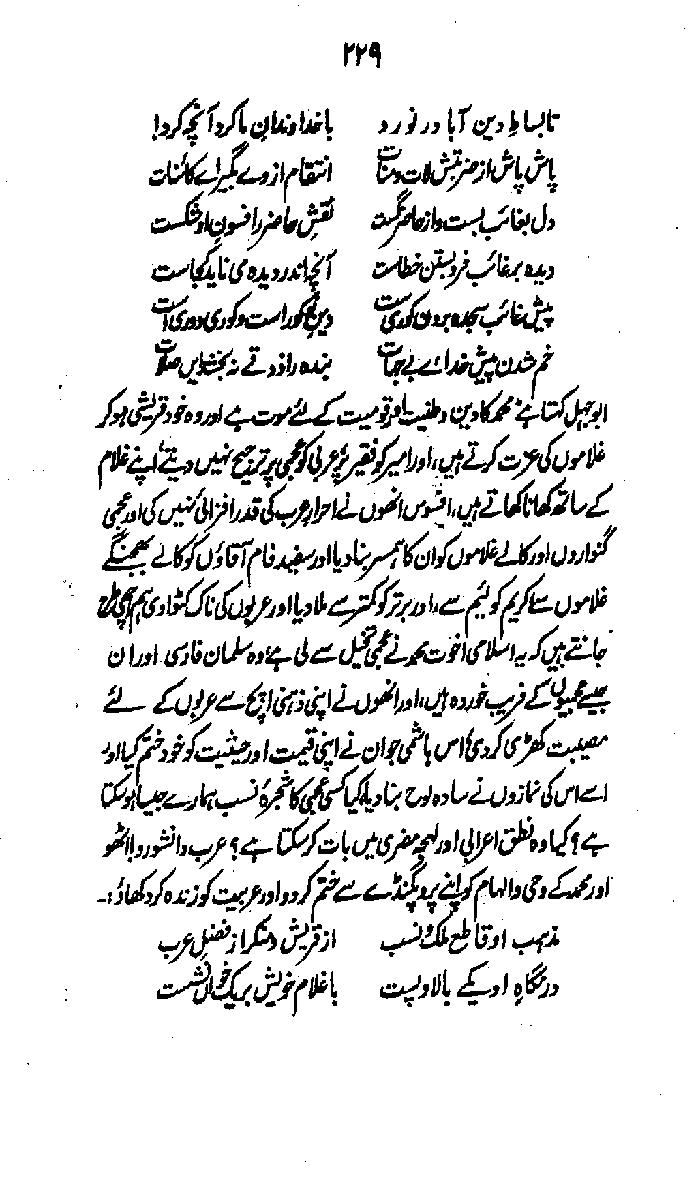 ۲۲۹
تا بساطِ دین آبا در نورد با خداوندانِ ما کرد آنچه کرد!
پاش پاش از ضربتش لات و منات انتقام از وے بگیر اے کائنات
دل بغائب بست و از حاضر گسست نقشِ حاضر را فسونِ او شکست
دیدہ بر غائب فرو بستن خطاست آنچہ اندر دیدہ می ناید کجاست
پیش غائب سجدہ بردن کوری است دینِ نو کور است و کوری دوری است
خم شدن پیش خداے بے جہات بندہ را ذوقے نہ بخشد ایں صلوٰت
ابوجہل کہتا ہے: محمد کا دین وطنیت اور قومیت کے لئے موت ہے اور وہ خود قریشی ہو کر
غلاموں کی عزت کرتے ہیں، اور امیر کو فقیر پر، عربی کو عجمی پر ترجیح نہیں دیتے، اپنے غلام
کے ساتھ کھانا کھاتے ہیں، افسوس انھوں نے احرارِ عرب کی قدر افزائی نہیں کی اور عجمی
گنواروں اور کالے غلاموں کو ان کا ہمسر بنا دیا اور سفید فام آقاؤں کو کالے بھجنگے
غلاموں سے، کریم کو لئیم سے، اور برتر کو کمتر سے ملا دیا اور عربوں کی ناک کٹوا دی ہم اچھی طرح
جانتے ہیں کہ یہ اسلامی اخوت محمد نے عجمی تخیل سے لی ہے، وہ سلمان فارسی اور ان
جیسے عجمیوں کے فریب خوردہ ہیں، اور انھوں نے اپنی ذہنی اپج سے عربوں کے لئے
مصیبت کھڑی کر دی، اس ہاشمی جوان نے اپنی قیمت اور حیثیت کو خود ختم کیا اور
اسے اس کی نمازوں نے سادہ لوح بنا دیا، کیا کسی عجمی کا شجرۂ نسب ہمارے جیسا ہو سکتا
ہے؟ کیا وہ نطق اعرابی اور لہجہ مضری میں بات کر سکتا ہے؟ عرب دانشورو! اٹھو
اور محمد کے وحی و الہام کو اپنے پروپگنڈے سے ختم کر دو اور عربیت کو زندہ کر دکھاؤ:-
مذہب او قاطع ملک و نسب از قریش و منکر از فضلِ عرب
در نگاہِ او یکے بالا و پست با غلام خویش بر یک خواں نشست